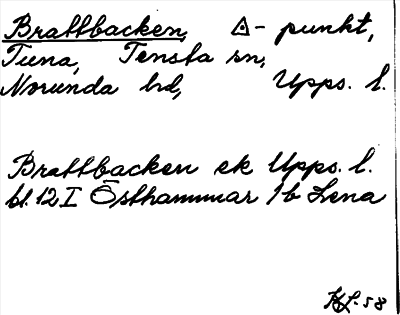 Brattbacken, △-punkt,
Tuna, Tensta sn,
Norunda hd, Upps. l.
Brattbacken ek Upps. l.
bl. 12 I Östhammar 1b Lena